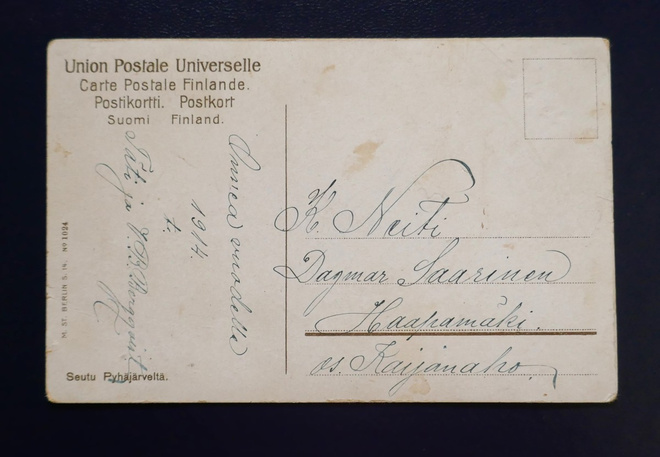 Union Postale Universelle
Carte Postale Finlande.
Postikortti. Postkort
Suomi Finland.
Onnea vuodelle
1914.
t.
Täti ja
K. Neiti
Dagmar Saarinen
Haapamäki.
os. Kaijanaho
M. ST. BERLIN S. 14. No 1024
Seutu Pyhäjärveltä.